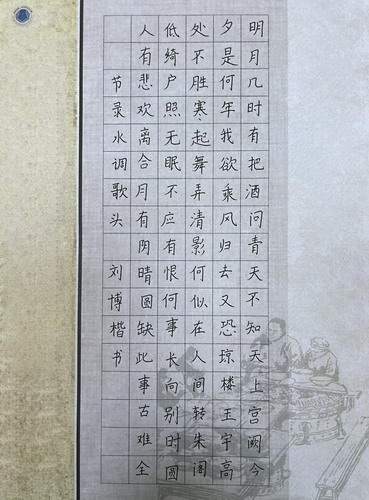 明月几时有把酒问青天不知天上宫阙今
夕是何年我欲乘风归去又恐琼楼玉宇高
处不胜寒起舞弄清影何似在人间转朱阁
低绮户照无眠不应有恨何事长向别时圆
人有悲欢离合月有阴晴圆缺此事古难全
节录水调歌头 刘博楷书